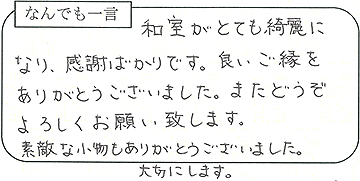 なんでも一言
和室がとても綺麗に
なり、感謝ばかりです。良いご縁を
ありがとうございました。またどうぞ
よろしくお願い致します。
素敵な小物もありがとうございました。
大切にします。